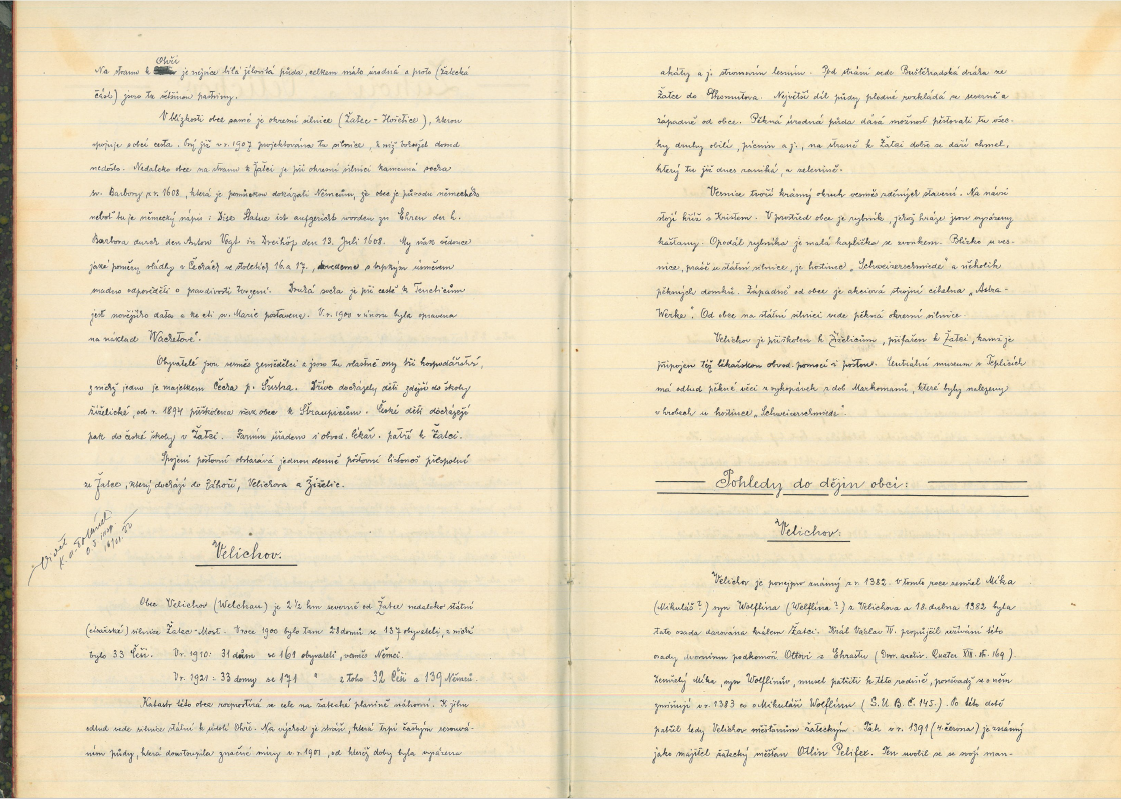 Na stranu k Ohři je nejvíce bílá jílovitá půda, celkem málo úrodná a proto (žatecká
část) jsou tu většinou pastviny.
V blízkosti obce samé je okresní silnice (Žatec - Hořetice), kterou
spojuje s obcí cesta. Prý již v r. 1907 projektována tu silnice, k níž bohužel dosud
nedošlo. Nedaleko obce na stranu k Žatci je při okresní silnici kamenná socha
sv. Barbory z r. 1608, která je pomůckou dokázati Němcům, že obec je původu německého
neboť tu je německý nápis: Dise Statue ist aufgericht worden zu Ehren der h.
Barbora durch den Anton Vogt in Dreihöf, den 13. Juli 1608. My však vědouce
jaké poměry vládly v Čechách ve stoletích 16. a 17., s trpkým úsměvem
snadno odpovíděti o pravdivosti tvrzení. Druhá socha je při cestě k Teneticům
jest novějšího data a ke cti sv. Marie postavena. V r. 1900 v únoru byla opravena
na náklad Wachetové.
Obyvatelé jsou vesměs zemědělci a jsou tu vlastně ony tři hospodářství,
z nichž jedno je majetkem Čecha p. Šustra. Dříve docházely děti zdejší do školy
žiželické, od r. 1894 přiškolena však obec k Straupicům. České děti docházejí
pak do české školy v Žatci. Farním úřadem i obvod. lékař. patří k Žatci.
Spojení poštovní obstarává jednou denně poštovní listonoš přespolní
ze Žatce, který dochází do Záhoří, Velichova a Žiželic.
Velichov.
Obec Velichov (Welchau) je 2½ km severně od Žatce nedaleko státní
(císařské) silnice Žatec - Most. V roce 1900 bylo tam 28 domů se 137 obyvateli, z nichž
bylo 33 Čechů. V r. 1910: 31 dům se 161 obyvateli, vesměs Němci.
V r. 1921 = 33 domy se 171 " z toho 32 Češi a 139 Němců.
Katastr této obce rozpostírá se cele na žatecké planině záhorní. K jihu
odtud vede silnice státní k údolí Ohře. Na východ je stráň, která trpí častým sesouvá-
ním půdy, která dostoupila značné míry v r. 1901, od kteréž doby byla vysázena
akáty a j. stromovím lesním. Pod strání vede Buštěhradská dráha ze
Žatce do Chomutova. Největší díl půdy plodné rozkládá se severně a
západně od obce. Pěkná úrodná půda dává možnost pěstovati tu všec-
ky druhy obilí, pícnin a j., na straně k Žatci dobře se daří chmel,
který tu již dnes zaniká, a zelenině.
Vesnice tvoří krásný okruh vesměs zděných stavení. Na návsi
stojí kříž s Kristem. V prostřed obce je rybník, jehož hráze jsou vysázeny
kaštany. Opodál rybníka je malá kaplička se zvonkem. Blízko u ves-
nice, právě u státní silnice, je hostinec „Schweizerschmiede" a několik
pěkných domků. Západně od obce je akciová strojní cihelna „Astra-
Werke". Od obce na státní silnici vede pěkná okresní silnice
Velichov je přiškolen k Žiželicům, přifařen k Žatci, kamž je
připojen též lékařskou obvod. pomocí i poštou. Zentrální museum v Teplicích
má odtud pěkné věci z vykopávek z dob Markomanů, které byly nalezeny
v hrobech u hostince „Schweizerschmiede".
Pohledy do dějin obcí:
Velichov:
Velichov je ponejprv známý z r. 1382. V tomto roce zemřel Míka
(Mikuláš?) syn Wolflina (Welflina?) z Velichova a 18. dubna 1382 byla
tato osada darována králem Žatci. Král Václav IV. propůjčil užívání této
osady dvornímu podkomoří Ottovi z Ehrastu (Dvor. archiv. Quater XIII. st. 169).
Zemřelý Míka, syn Wolflinův, musel patřiti k této rodině, poněvadž se o něm
zmiňují v r. 1383 co o Mikuláši Wolflinu (S. U. B. Č. 145). Po této době
patřil tedy Velichov měšťanům žateckým. Tak v r. 1391 (4. června) je známý
jako majitel žatecký měšťan Otlin Pelifex. Ten uvolil se se svojí man-